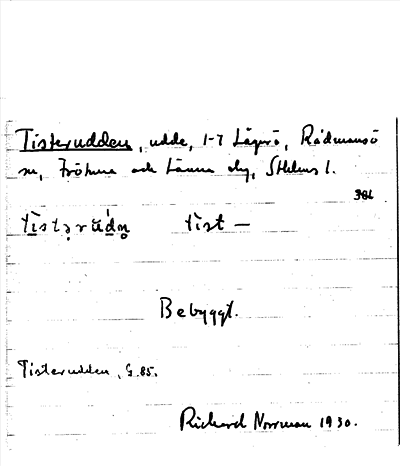 Tisterudden, udde, 1-7 Lågarö, Rådmansö
sn, Frötuna och Länna skg, Sthlms l.
384
tist
Bebyggt.
Tisterudden, G. 85.
Richard Norrman 1930.